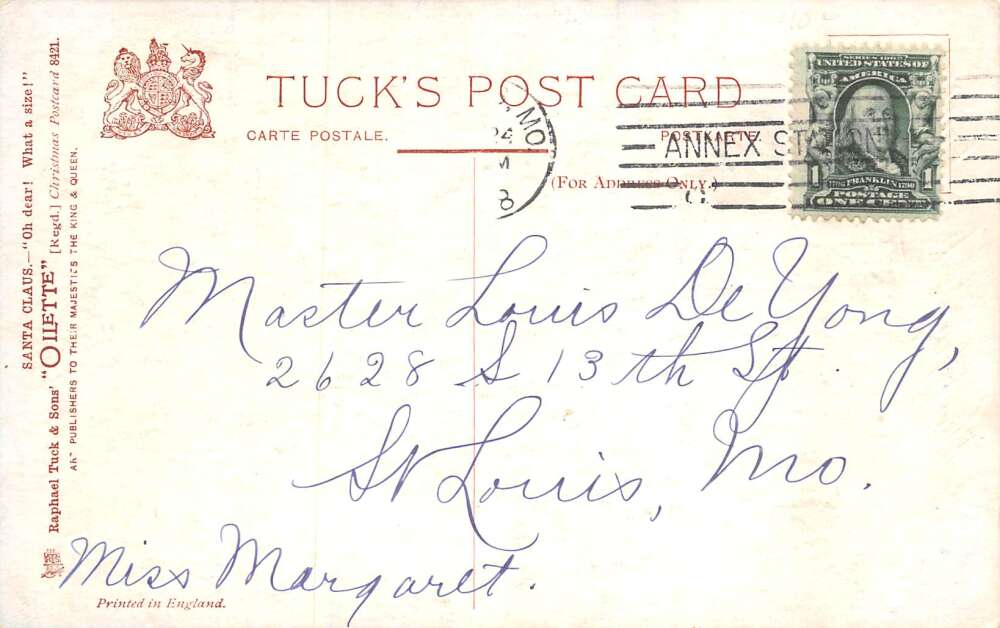 SANTA CLAUS.—"Oh dear! What a size!"
Raphael Tuck & Sons' "OILETTE" [Regd.] Christmas Postcard 8421.
ART PUBLISHERS TO THEIR MAJESTIES THE KING & QUEEN.
TUCK'S POST CARD
CARTE POSTALE.
POSTKARTE.
(FOR ADDRESS ONLY.)
MO.
24
M
8
ANNEX STATION
SERIES 1902
UNITED STATES OF
AMERICA
1706 FRANKLIN 1790
1 POSTAGE 1
ONE CENT
Master Louis De Yong,
2628 S 13th St.
St Louis, Mo.
Miss Margaret.
Printed in England.